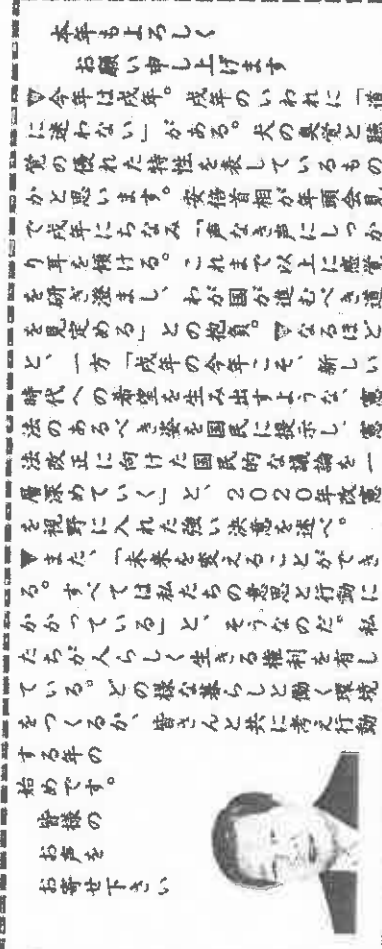 本年もよろしく
お願い申し上げます
▼今年は戌年。戌年のいわれに「道
に迷わない」がある。犬の臭覚と聴
覚の優れた特性を表しているもの
かと思います。安倍首相が年頭会見
で戌年にちなみ「声なき声にしっか
り耳を傾ける。これまで以上に感覚
を研ぎ澄まし、わが国が進むべき道
を見定める」との抱負。▼なるほど
と、一方「戌年の今年こそ、新しい
時代への希望を生み出すような、憲
法のあるべき姿を国民に提示し、憲
法改正に向けた国民的な議論を一
層深めていく」と、2020年改憲
を視野に入れた強い決意を述べ。
▼また、「未来を変えることができ
る。すべては私たちの意思と行動に
かかっている」と、そうなのだ。私
たちが人らしく生きる権利を有し
ている。どの様な暮らしと働く環境
をつくるか、皆さんと共に考え行動
する年の
始めです。
皆様の
お声を
お寄せ下さい